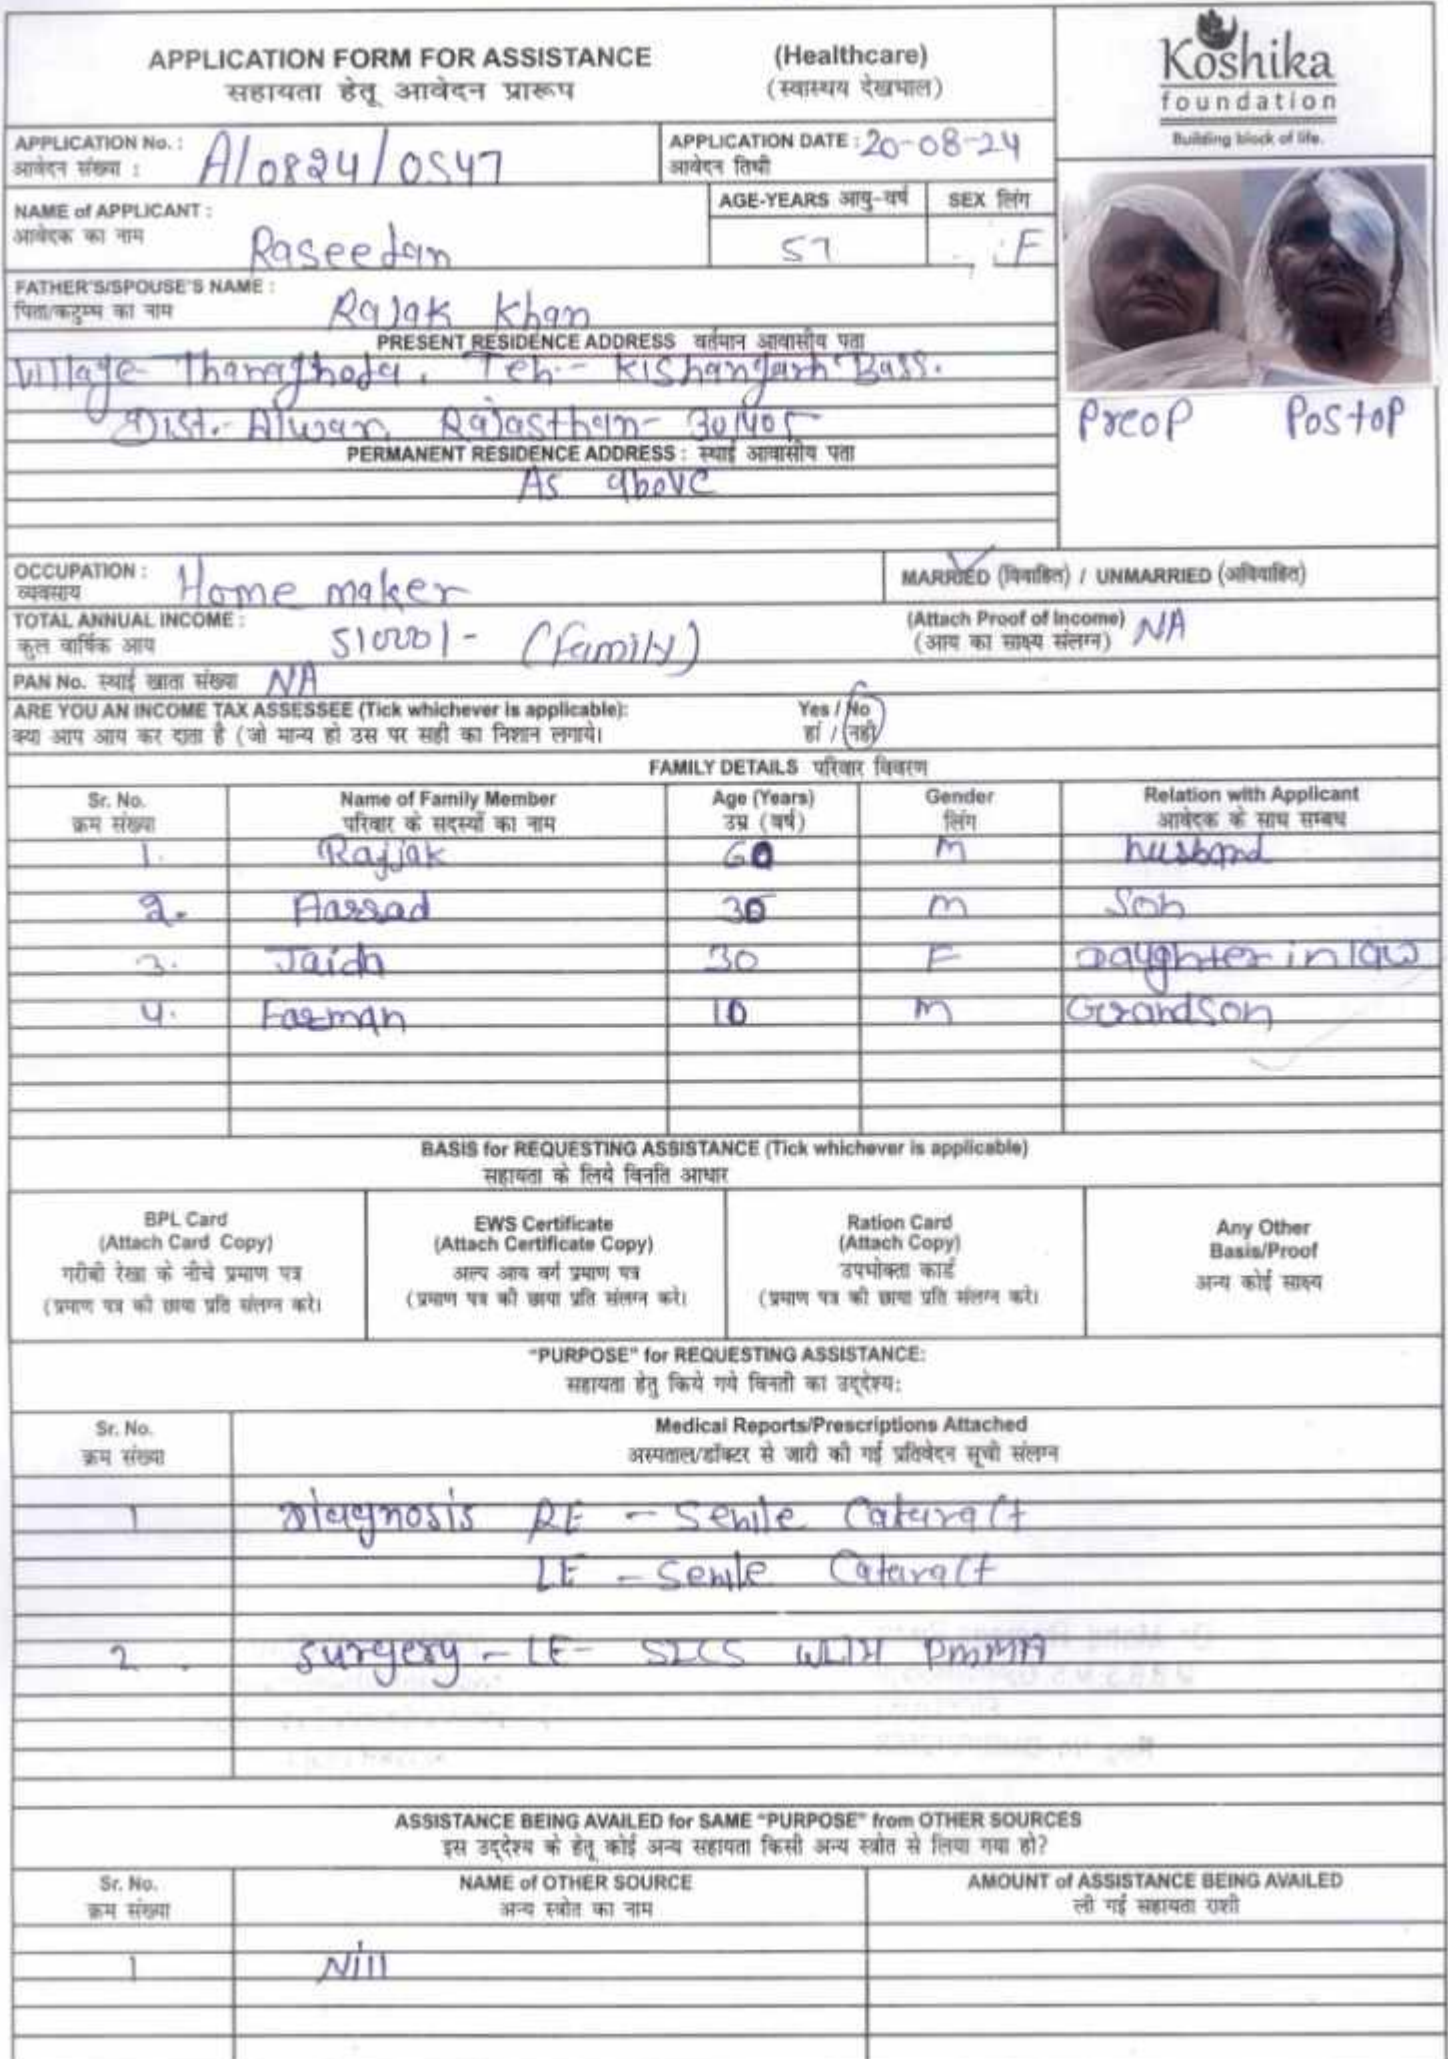 APPLICATION FORM FOR ASSISTANCE (Healthcare)
सहायता हेतू आवेदन प्रारूप (स्वास्थय देखभाल)
Koshika
foundation
Building block of life.
APPLICATION No. : A/0824/0547
आवेदन संख्या :
APPLICATION DATE : 20-08-24
आवेदन तिथी
NAME of APPLICANT : Raseedan
आवेदक का नाम
AGE-YEARS आयु-वर्ष SEX लिंग
57 F
FATHER'S/SPOUSE'S NAME : Rajak Khan
पिता/कटुम्ब का नाम
PRESENT RESIDENCE ADDRESS वर्तमान आवासीय पता
Village Teh.- Kishangarh Bass.
Dist.- Alwar, Rajasthan- 301405
Preop Postop
PERMANENT RESIDENCE ADDRESS : स्थाई आवासीय पता
As above
OCCUPATION : Home maker
व्यवसाय
MARRIED (विवाहित) / UNMARRIED (अविवाहित)
TOTAL ANNUAL INCOME : 51000/- (Family)
कुल वार्षिक आय
(Attach Proof of Income) NA
(आय का साक्ष्य संलग्न)
PAN No. स्थाई खाता संख्या NA
ARE YOU AN INCOME TAX ASSESSEE (Tick whichever is applicable): Yes / No
क्या आप आय कर दाता है (जो मान्य हो उस पर सही का निशान लगाये। हां / नही
FAMILY DETAILS परिवार विवरण
Sr. No. Name of Family Member Age (Years) Gender Relation with Applicant
क्रम संख्या परिवार के सदस्यों का नाम उम्र (वर्ष) लिंग आवेदक के साथ सम्बध
1. Rajjak 60 M husband
2. Aarsad 35 M Son
3. Jaida 30 F Daughter in law
4. Farman 10 M Grandson
BASIS for REQUESTING ASSISTANCE (Tick whichever is applicable)
सहायता के लिये विनति आधार
BPL Card
(Attach Card Copy)
गरीबी रेखा के नीचे प्रमाण पत्र
(प्रमाण पत्र की छाया प्रति संलग्न करे।
EWS Certificate
(Attach Certificate Copy)
अल्प आय वर्ग प्रमाण पत्र
(प्रमाण पत्र की छाया प्रति संलग्न करे।
Ration Card
(Attach Copy)
उपभोक्ता कार्ड
(प्रमाण पत्र की छाया प्रति संलग्न करे।
Any Other
Basis/Proof
अन्य कोई साक्ष्य
"PURPOSE" for REQUESTING ASSISTANCE:
सहायता हेतु किये गये विनती का उद्देश्य:
Sr. No. Medical Reports/Prescriptions Attached
क्रम संख्या अस्पताल/डॉक्टर से जारी की गई प्रतिवेदन सूची संलग्न
1 Diagnosis RE - Senile Cataract
LE - Senile Cataract
2. Surgery - LE- SICS WITH PMMA
ASSISTANCE BEING AVAILED for SAME "PURPOSE" from OTHER SOURCES
इस उद्देश्य के हेतू कोई अन्य सहायता किसी अन्य स्त्रोत से लिया गया हो?
Sr. No. NAME of OTHER SOURCE AMOUNT of ASSISTANCE BEING AVAILED
क्रम संख्या अन्य स्त्रोत का नाम ली गई सहायता राशी
1 Nill